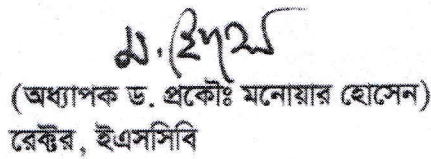 (অধ্যাপক ড. প্রকৌঃ মনোয়ার হোসেন)
রেক্টর, ইএসসিবি